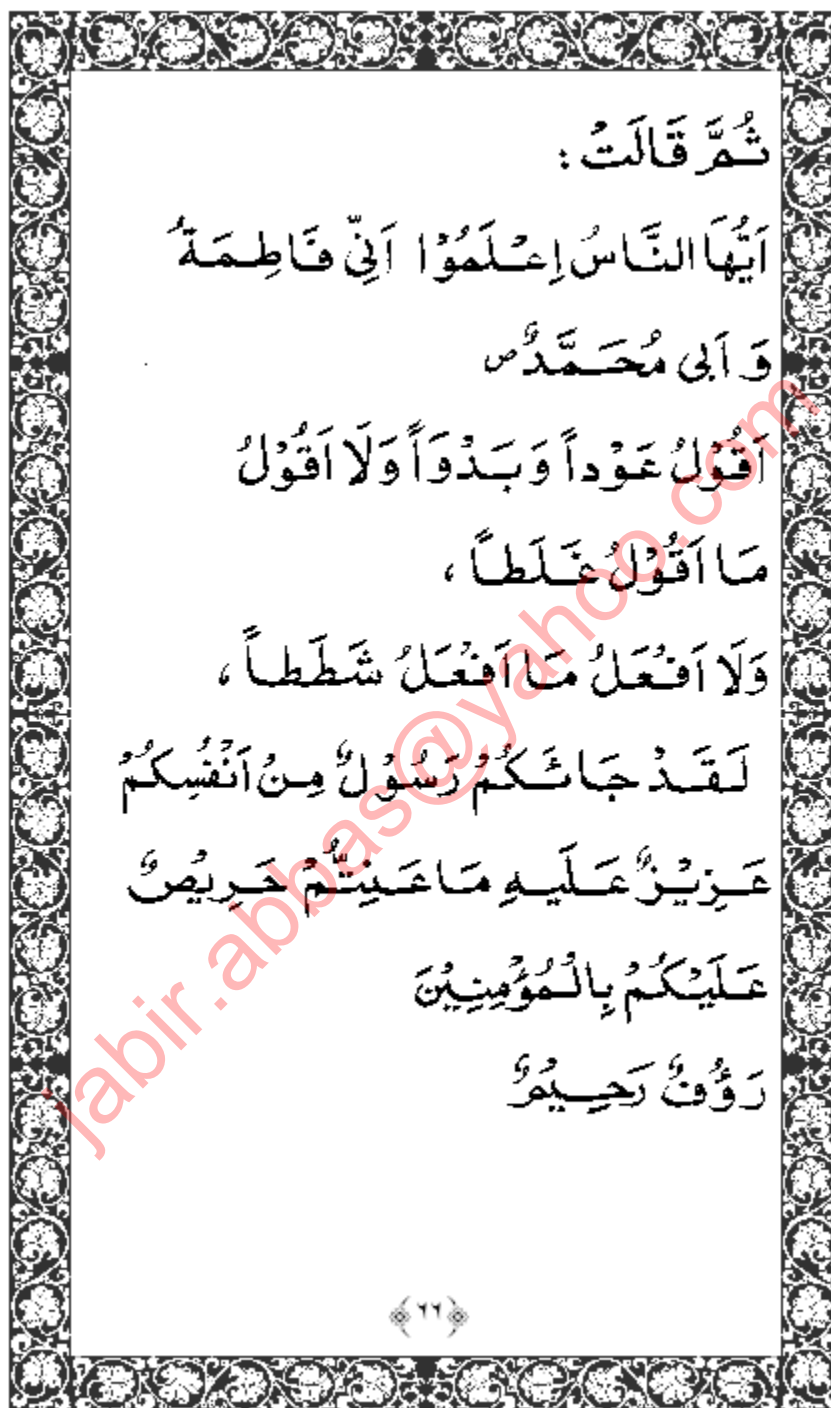 ثُمَّ قَالَتْ :
اَيُّهَا النَّاسُ اِعْلَمُوْا اَنِّيْ فَاطِمَةُ
وَ اَبِى مُحَمَّدٌ ص
اَقُوْلُ عَوْداً وَ بَدْوَاً وَلَا اَقُوْلُ
مَا اَقُوْلُ غَلَطاً ،
وَلَا اَفْعَلُ مَا اَفْعَلُ شَطَطاً ،
لَقَدْ جَائَكُمْ رَسُوْلٌ مِنْ اَنْفُسِكُمْ
عَزِيْزٌ عَلَيهِ مَا عَنِتُّمْ حَرِيْصٌ
عَلَيْكُمْ بِالْمُؤْمِنِيْنَ
رَؤُفٌ رَحِيْمٌ
﴿٦٦﴾
jabir.abbas@yahoo.com